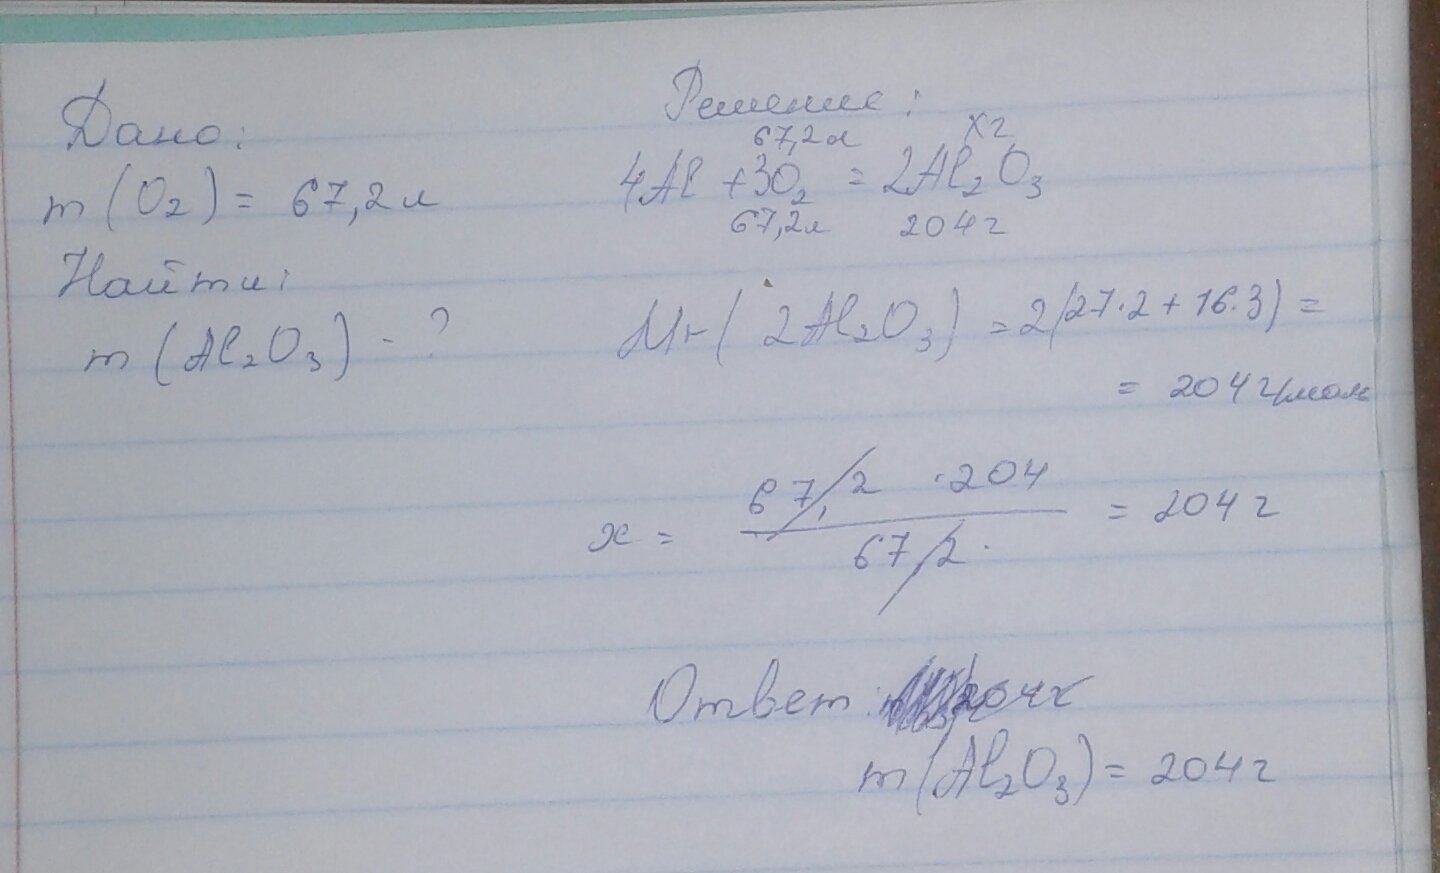 Дано:
m(O₂) = 67,2 л
Найти:
m(Al₂O₃) - ?
Решение:
67,2 л xг
4Al + 3O₂ = 2Al₂O₃
67,2 л 204 г
Mr(2Al₂O₃) = 2(27·2 + 16·3) =
= 204 г/моль
x = 67,2 · 204 / 67,2 = 204 г
Ответ:
m(Al₂O₃) = 204 г